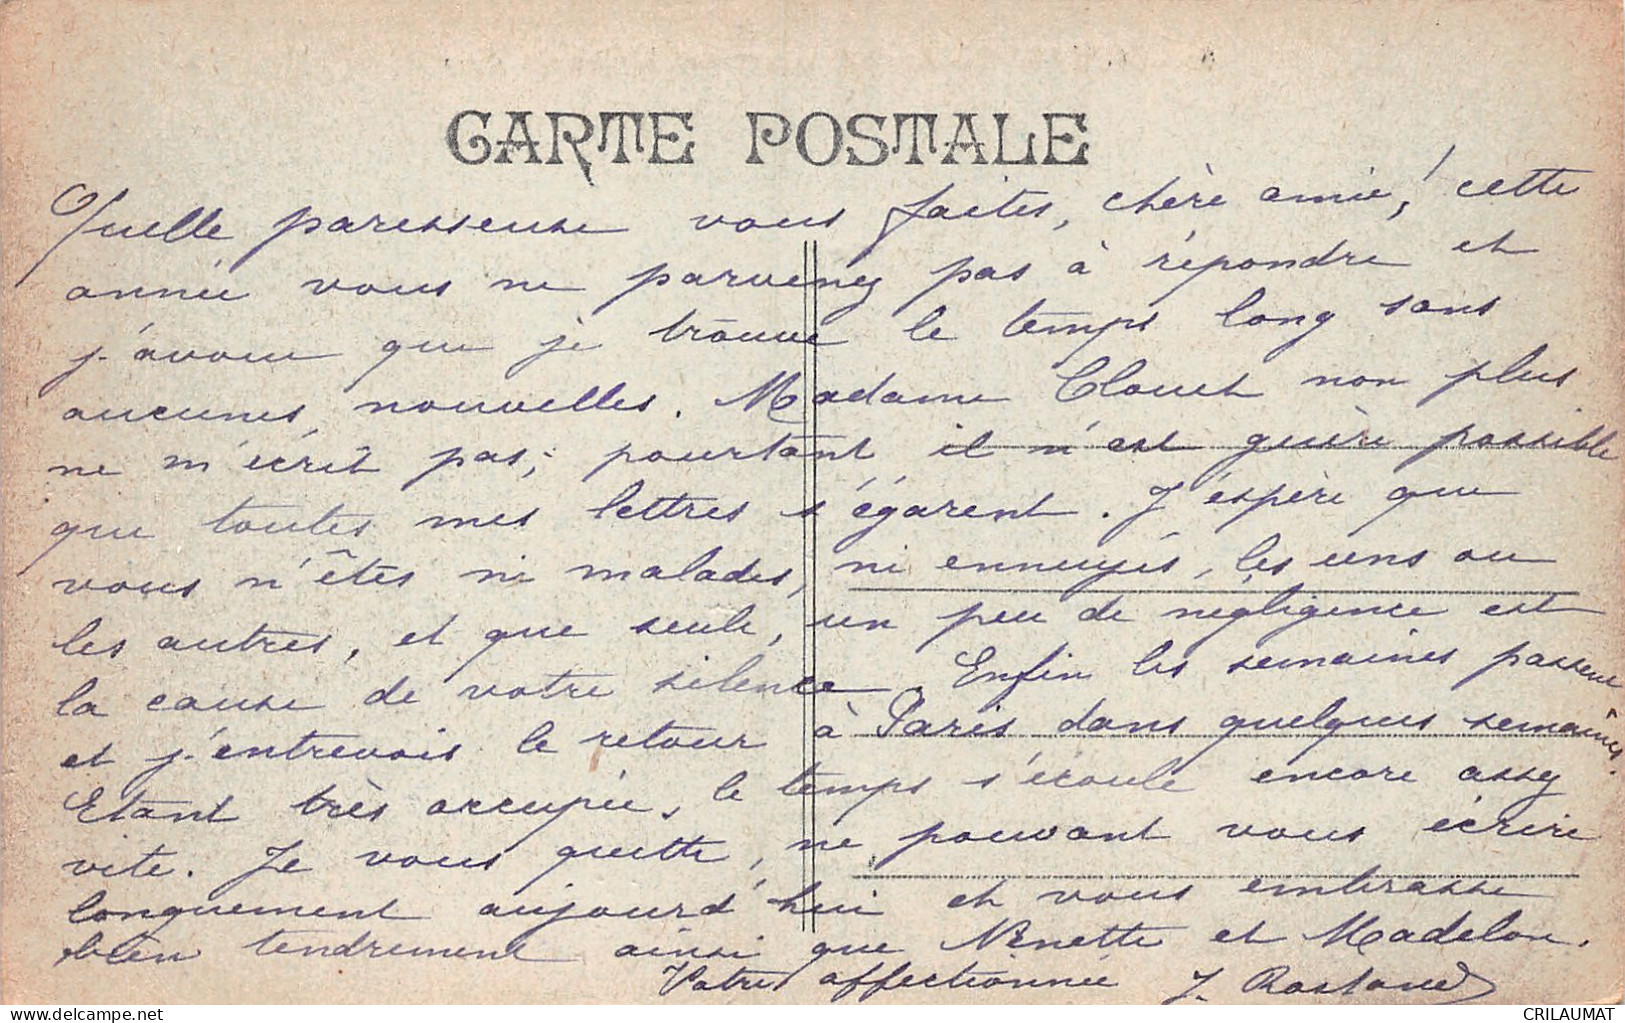 CARTE POSTALE
Quelle paresseuse vous faites, chère amie! cette
année vous ne parvenez pas à répondre et
j'avoue que je trouve le temps long sans
aucunes nouvelles. Madame Clouet non plus
ne m'écrit pas; pourtant il n'est guère possible
que toutes mes lettres s'égarent. J'espère que
vous n'êtes ni malades, ni ennuyés, les uns ou
les autres, et que seule, un peu de négligence est
la cause de votre silence. Enfin les semaines passent
et j'entrevois le retour à Paris dans quelques semaines.
Etant très occupée, le temps s'écoule encore assez
vite. Je vous quitte, ne pouvant vous écrire
longuement aujourd'hui et vous embrasse
bien tendrement ainsi que Ninette et Madelon.
Votre affectionnée J. Rostand
delcampe.net
CRILAUMAT